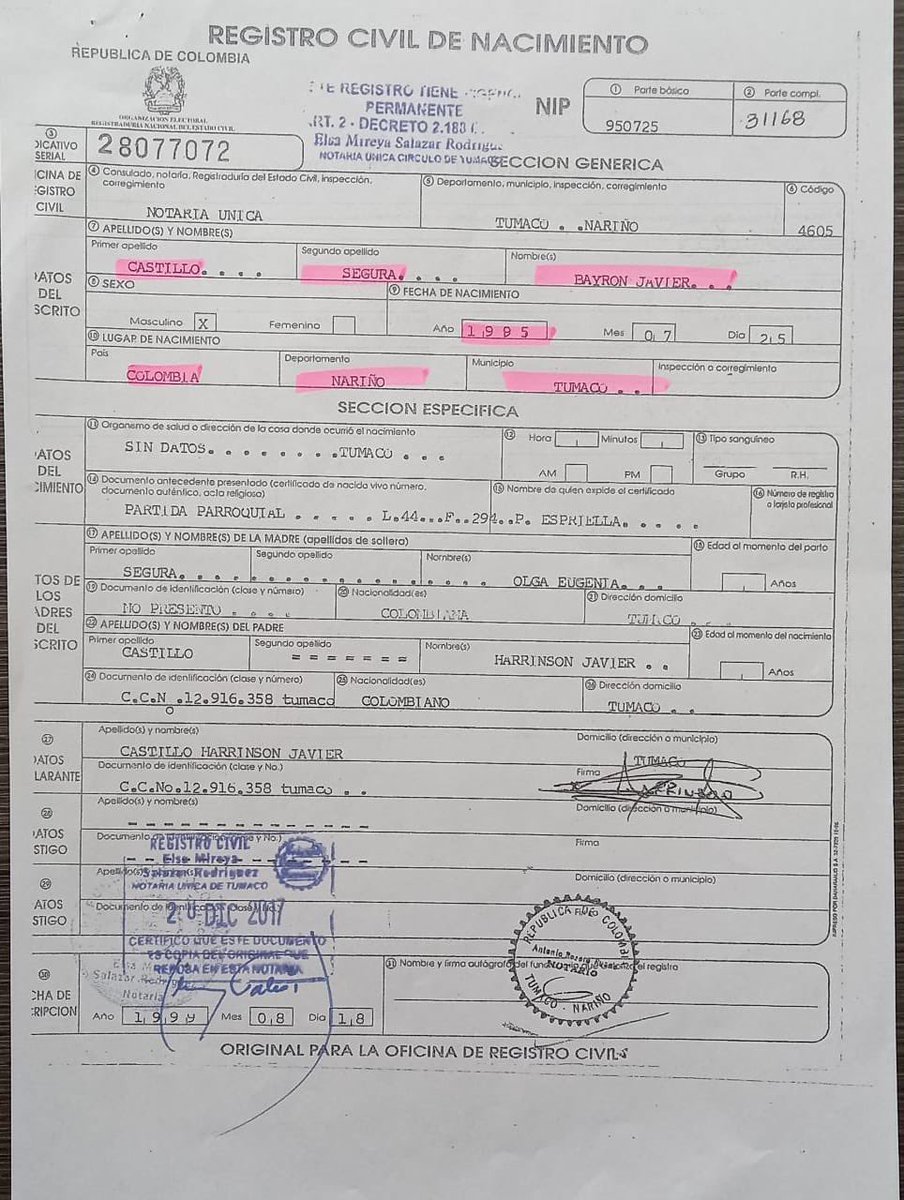 REGISTRO CIVIL DE NACIMIENTO
REPUBLICA DE COLOMBIA
ORGANIZACION ELECTORAL
REGISTRADURIA NACIONAL DEL ESTADO CIVIL
REGISTRO TIENE
PERMANENTE
ART. 2 - DECRETO 2.188
Elsa Mireya Salazar
NOTARIA UNICA CIRCULO DE
NIP
① Parte básica
950725
② Parte compl.
31168
③
SERIAL
28077072
SECCION GENERICA
CINA DE
GISTRO
CIVIL
④ Consulado, notaría, Registraduría del Estado Civil, inspección,
corregimiento
NOTARIA UNICA
⑤ Departamento, municipio, inspección, corregimiento
TUMACO . .NARIÑO
⑥ Código
4605
ATOS
DEL
SCRITO
⑦ APELLIDO(S) Y NOMBRE(S)
Primer apellido
CASTILLO. . . .
Segundo apellido
SEGURA. . . .
Nombre(s)
BAYRON JAVIER. . .
⑧ SEXO
Masculino X
Femenino
⑨ FECHA DE NACIMIENTO
Año 1995
Mes 07
Dia 25
⑩ LUGAR DE NACIMIENTO
País
COLOMBIA
Departamento
NARIÑO
Municipio
TUMACO . .
Inspección o corregimiento
SECCION ESPECIFICA
ATOS
DEL
CIMIENTO
⑪ Organismo de salud o dirección de la casa donde ocurrió el nacimiento
SIN DATOS. . . . . . . .TUMACO . . .
⑫ Hora
Minutos
AM
PM
⑬ Tipo sanguíneo
Grupo
R.H.
⑭ Documento antecedente presentado (certificado de nacido vivo número,
documento auténtico, acta religiosa)
PARTIDA PARROQUIAL . . . . . L.44...F..294..P. ESPRIELLA. . . . .
⑮ Nombre de quien expide el certificado
⑯ Número de registro
o tarjeta profesional
TOS DE
LOS
ADRES
DEL
SCRITO
⑰ APELLIDO(S) Y NOMBRE(S) DE LA MADRE (apellidos de soltera)
Primer apellido
SEGURA. . . . .
Segundo apellido
Nombre(s)
OLGA EUGENIA. . .
⑱ Edad al momento del parto
Años
⑲ Documento de identificación (clase y número)
NO PRESENTO . . . .
⑳ Nacionalidad(es)
COLOMBIANA
㉑ Dirección domicilio
㉒ APELLIDO(S) Y NOMBRE(S) DEL PADRE
Primer apellido
CASTILLO
Segundo apellido
= = = = = = =
Nombre(s)
HARRINSON JAVIER . .
㉓ Edad al momento del nacimiento
Años
㉔ Documento de identificación (clase y número)
C.C.N .12.916.358 tumaco
o
㉕ Nacionalidad(es)
COLOMBIANO
㉖ Dirección domicilio
TUMACO . .
㉗
ATOS
LARANTE
Apellido(s) y nombre(s)
CASTILLO HARRINSON JAVIER
Domicilio (dirección o municipio)
TUMACO
Documento de identificación (clase y No.)
C.C.No.12.916.358 tumaco . .
Firma
㉘
ATOS
STIGO
Apellido(s) y nombre(s)
Domicilio (dirección o municipio)
Documento de identificación (clase y No.)
Firma
㉙
ATOS
STIGO
Apellido(s) y nombre(s)
Domicilio (dirección o municipio)
REGISTRO CIVIL
Elsa Mireya
Salazar Rodriguez
NOTARIA UNICA DE TUMACO
20 DIC 2017
CERTIFICO QUE ESTE DOCUMENTO
ES COPIA DEL ORIGINAL QUE
REPOSA EN ESTA NOTARIA
Notaria
REPUBLICA DE COLOMBIA
NOTARIO
TUMACO - NARIÑO
㉚
CHA DE
RIPCION
Año 1999
Mes 08
Dia 18
㉛ Nombre y firma autógrafa del registro
ORIGINAL PARA LA OFICINA DE REGISTRO CIVIL